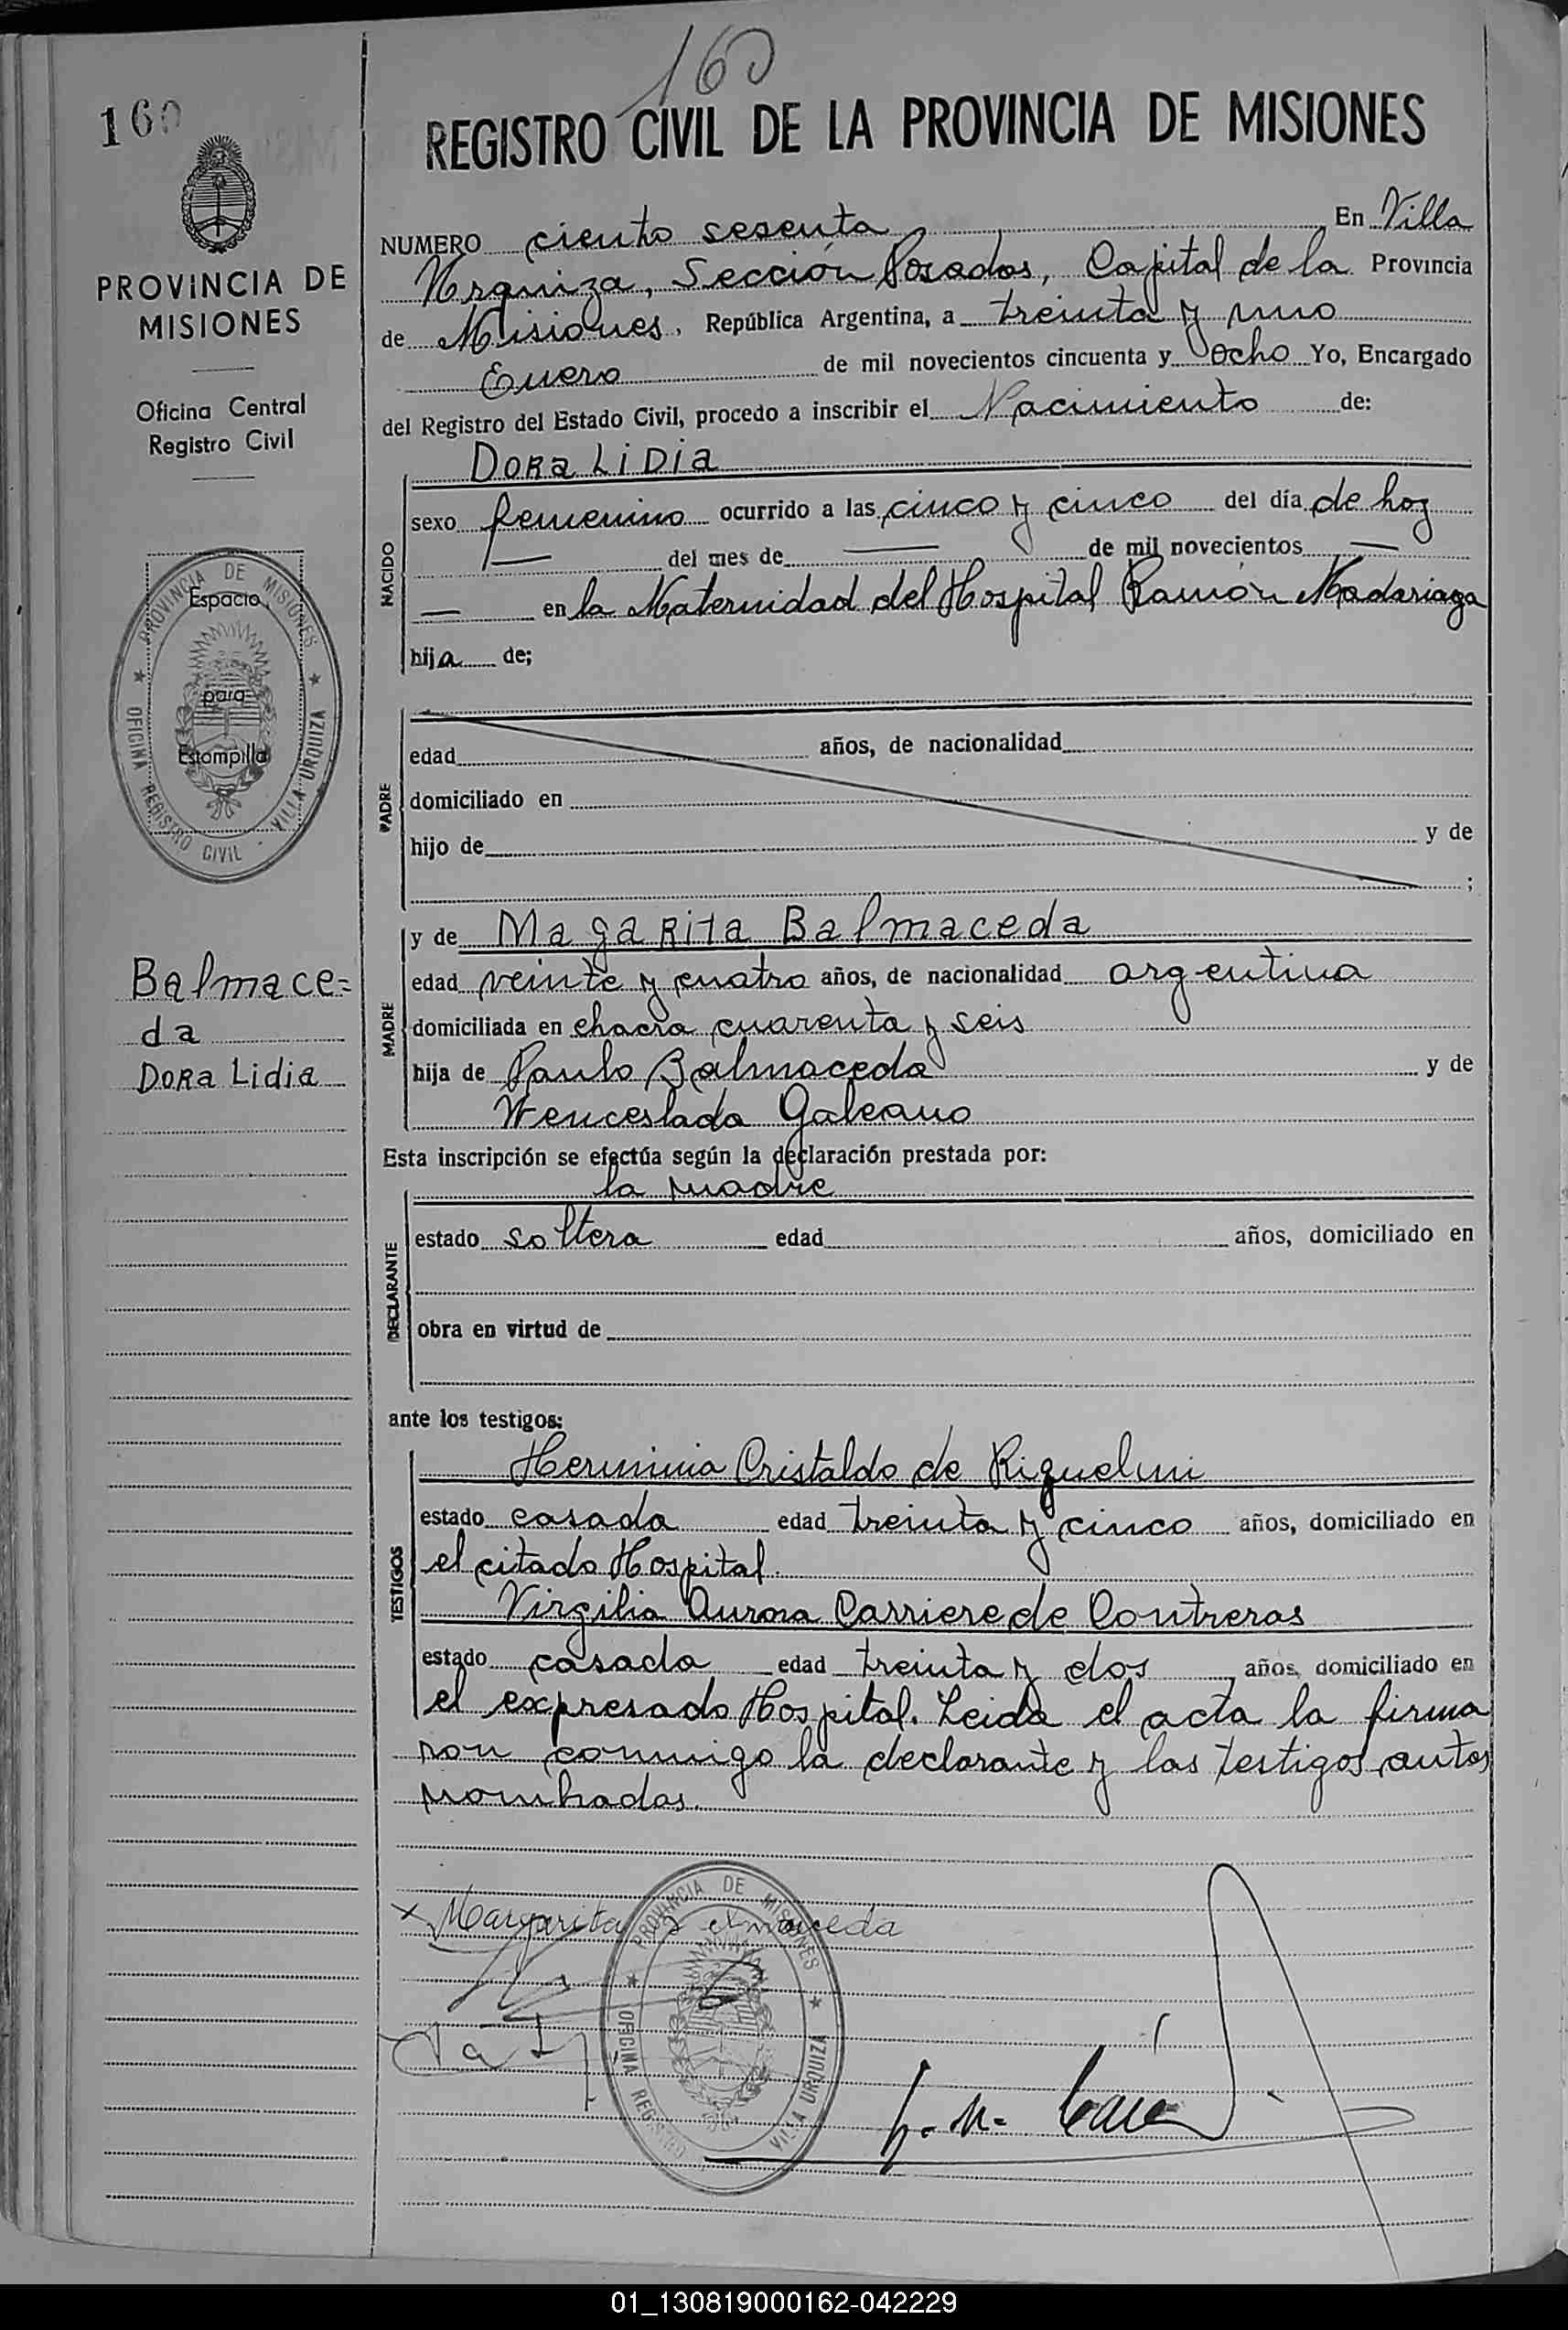 160
160
REGISTRO CIVIL DE LA PROVINCIA DE MISIONES
PROVINCIA DE
MISIONES
Oficina Central
Registro Civil
PROVINCIA DE MISIONES
OFICINA REGISTRO CIVIL - VILLA URQUIZA
Espacio
para
Estampilla
Balmace=
da
Dora Lidia
NUMERO ciento sesenta, En Villa
Urquiza, Sección Posadas, Capital de la Provincia
de Misiones, República Argentina, a treinta y uno
Enero de mil novecientos cincuenta y ocho Yo, Encargado
del Registro del Estado Civil, procedo a inscribir el Nacimiento de:
NACIDO
Dora Lidia
sexo femenino ocurrido a las cinco y cinco del día de hoy
— del mes de — de mil novecientos —
— en la Maternidad del Hospital Ramón Madariaga
hija de;
PADRE
edad años, de nacionalidad
domiciliado en
hijo de y de
;
MADRE
y de Magarita Balmaceda
edad veinte y cuatro años, de nacionalidad argentina
domiciliada en chacra cuarenta y seis
hija de Paulo Balmaceda y de
Wenceslada Galeano
Esta inscripción se efectúa según la declaración prestada por:
DECLARANTE
la madre
estado soltera edad años, domiciliado en
obra en virtud de
ante los testigos:
TESTIGOS
Herminia Cristaldo de Riquelmi
estado casada edad treinta y cinco años, domiciliado en
el citado Hospital.
Virgilia Aurora Carriere de Contreras
estado casada edad treinta y dos años, domiciliado en
el expresado Hospital. Leida el acta la firma
ron conmigo la declarante y los testigos antes
nombrados.
x Margarita Balmaceda
PROVINCIA DE MISIONES
OFICINA REGISTRO VILLA URQUIZA
01_130819000162-042229